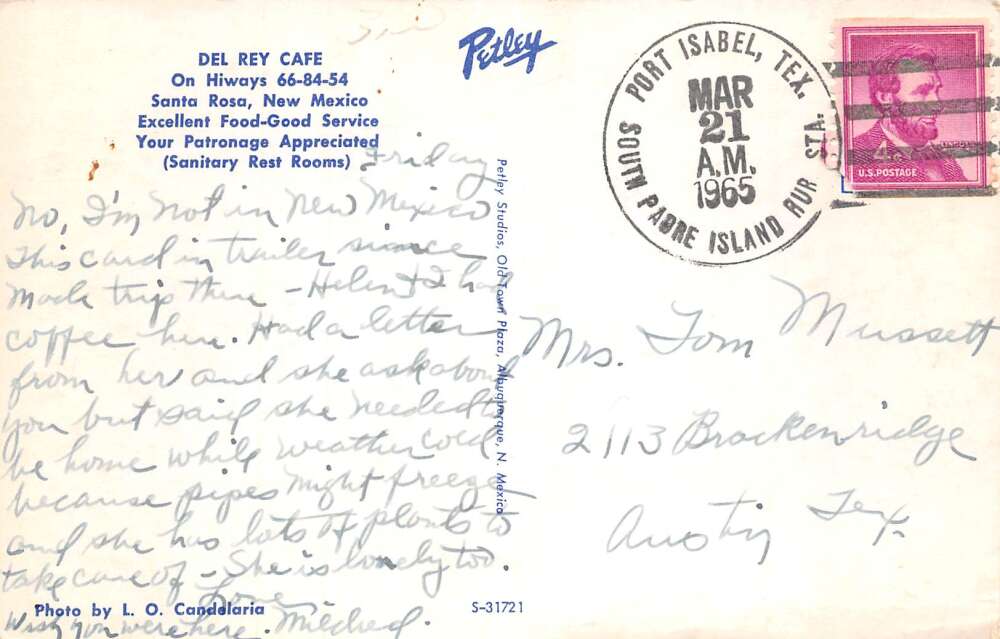 DEL REY CAFE
On Hiways 66-84-54
Santa Rosa, New Mexico
Excellent Food-Good Service
Your Patronage Appreciated
(Sanitary Rest Rooms)
Petley
PORT ISABEL, TEX.
MAR
21
A.M.
1965
SOUTH PADRE ISLAND RUR STA.
LINCOLN
4¢
U.S. POSTAGE
Friday
No, I'm not in New Mexico
This card in trailer since
Made trip there - Helen & I had
coffee here. Had a letter
from her and she ask about
you but said she needed to
be home while weather cold
because pipes might freeze
and she has lots of plants to
take care of - She is lonely too.
Love
Wish you were here. Mildred.
Petley Studios, Old Town Plaza, Albuquerque, N. Mexico
Mrs. Tom Mussett
2113 Brackenridge
Austin Tex.
Photo by L. O. Candelaria
S-31721